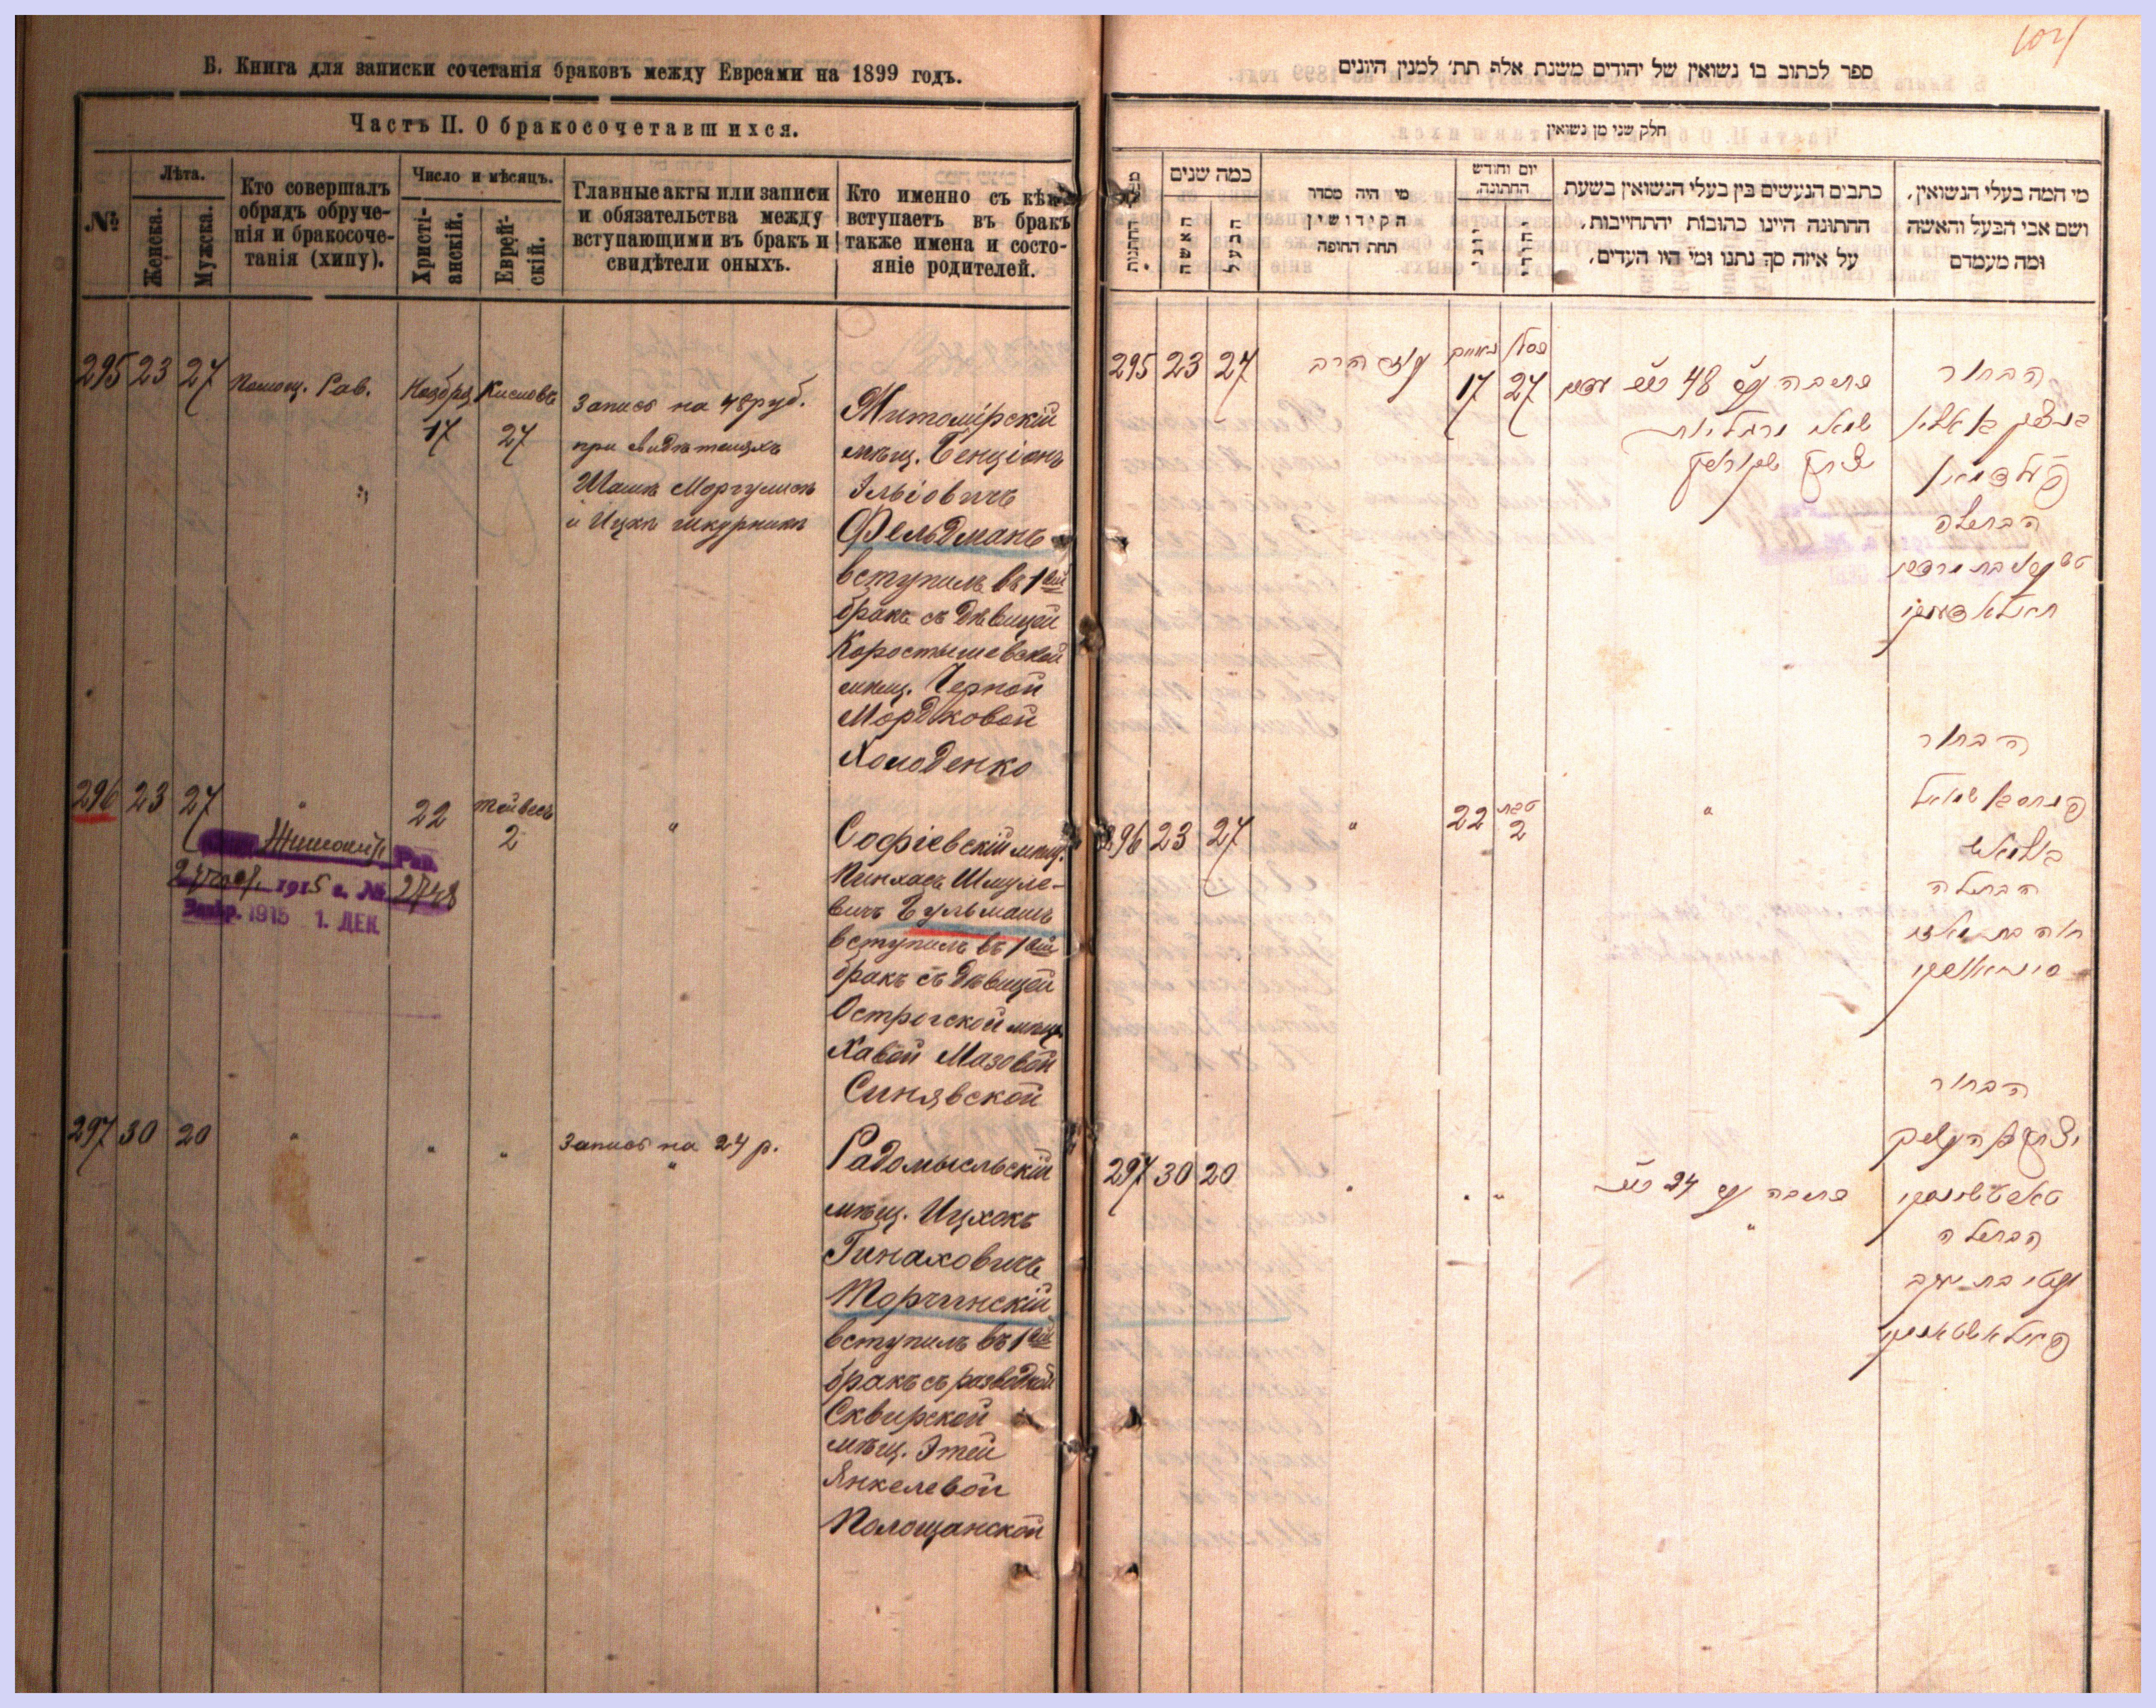 Б. Книга для записки сочетанія браковъ между Евреями на 1899 годъ.
Часть II. О бракосочетавшихся.
№
Лѣта.
Женска.
Мужска.
Кто совершалъ
обрядъ обруче-
нія и бракосоче-
танія (хипу).
Число и мѣсяцъ.
Христі-
анскій.
Еврей-
скій.
Главные акты или записи
и обязательства между
вступающими въ бракъ и
свидѣтели оныхъ.
Кто именно съ кѣмъ
вступаетъ въ бракъ
также имена и состо-
яніе родителей.
295 23 27 Помощ. Рав. Ноября 17 Кислевъ 27
Запись на 48 руб.
при свидѣтеляхъ
Шаша Моргулисъ
и Ицкъ Шкурникъ
Житомірскій
мѣщ. Бенціонъ
Ельіовичъ
Фельдманъ
вступилъ въ 1ый
бракъ съ дѣвицей
Коростышевской
мѣщ. Черной
Мордковой
Холоденко
296 23 27 " 22 Тейвесъ 2 "
Житомір. Рав.
1915 г. № 2748
1915 1. ДЕК.
Софіевскій мѣщ.
Пинхасъ Шмуле-
вичъ Бульмашъ
вступилъ въ 1ый
бракъ съ дѣвицей
Острогской мѣщ.
Хавой Мазовой
Синявской
297 30 20 " " "
Запись на 24 р.
"
Радомысльскій
мѣщ. Ицхокъ
Гинаховичъ
Торчинскій
вступилъ въ 1ый
бракъ съ разводкой
Сквирской
мѣщ. Этей
Янкелевой
Полощанской
ספר לכתוב בו נשואין של יהודים משנת אלף תת׳ למנין היונים
חלק שני מן נשואין
כמה שנים
האשה
הבעל
מי היה מסדר
הקידושין
תחת החופה
יום וחודש
החתונה.
יוני
יהודי
כתבים הנעשים בין בעלי הנשואין בשעת
החתונה היינו כתובות והתחייבות,
על איזה סך נתנו ומי היו העדים,
מי המה בעלי הנשואין,
ושם אבי הבעל והאשה
ומה מעמדם
295 23 27 עוזר הרב 17 כסלו 27
כתובה על 48
הבחור
פעלדמאן
הבתולה
חאלאדענקי
296 23 27 " 22 טבת 2 "
הבחור
פנחס בן שמואל
בולמאש
הבתולה
חוה בת מאזי
סיניאווסקי
297 30 20 " " "
כתובה על 24
"
הבחור
הבתולה